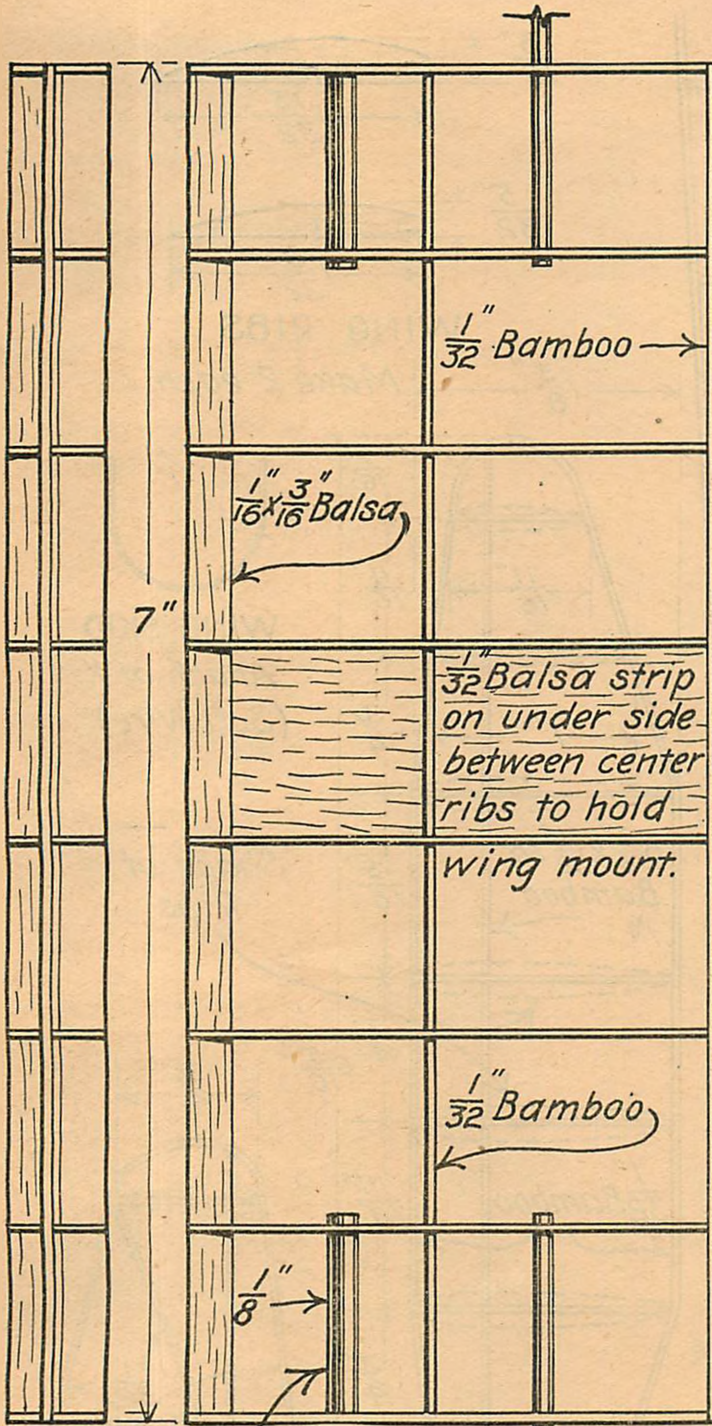 1/32" Bamboo
1/16" x 3/16" Balsa
7"
1/32" Balsa strip
on under side
between center
ribs to hold
wing mount.
1/32" Bamboo
1/8"
WING RIBS